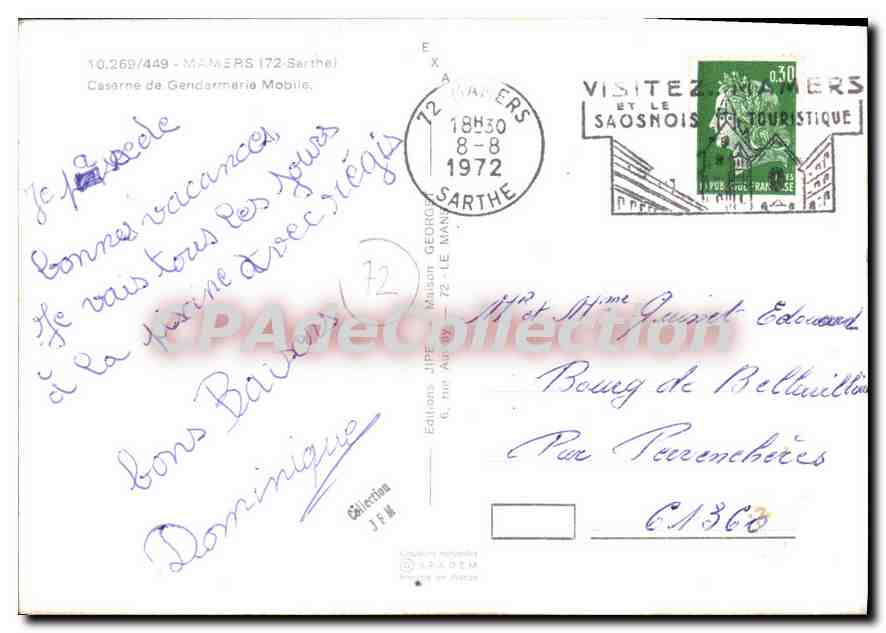 10.269/449 - MAMERS (72-Sarthe)
Caserne de Gendarmerie Mobile.
Je possède
bonnes vacances,
Je vais tous les jours
à la pisine avec régis
bons Baisers
Dominique
72
EXA
Editions JIPE - Maison GEORGET
6, rue Auvray - 72 - LE MANS
Collection
J F M
Couleurs naturelles
© ARADEM
Imprimé en France
72 MAMERS
18H30
8-8
1972
SARTHE
VISITEZ MAMERS
ET LE
SAOSNOIS TOURISTIQUE
0,30
REPUBLIQUE FRANCAISE
Mr et Mme Guinet Edouard
Bourg de Bellavilliers
Par Pervenchères
61360
CPAdeCollection